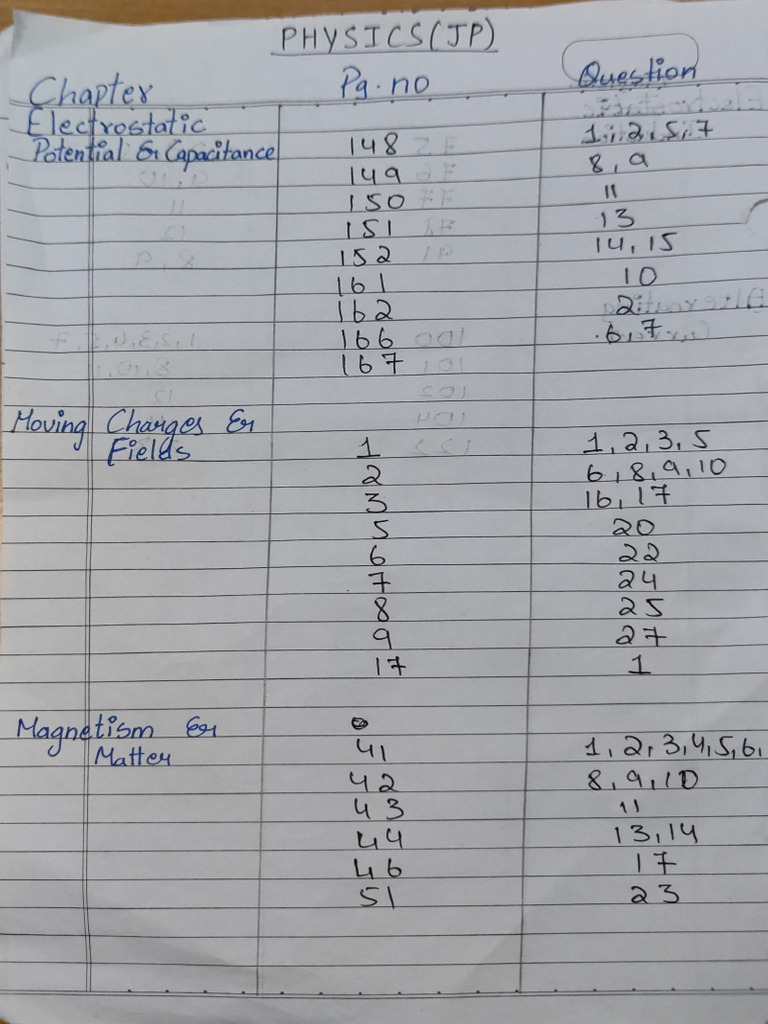 PHYSICS(JP)
Chapter Pg. no Question
Electrostatic
Potential & Capacitance 148 1, 2, 5, 7
149 8, 9
150 11
151 13
152 14, 15
161 10
162 2
166 6, 7
167
Moving Charges &
Fields 1 1, 2, 3, 5
2 6, 8, 9, 10
3 16, 17
5 20
6 22
7 24
8 25
9 27
17 1
Magnetism &
Matter 41 1, 2, 3, 4, 5, 6,
42 8, 9, 10
43 11
44 13, 14
46 17
51 23